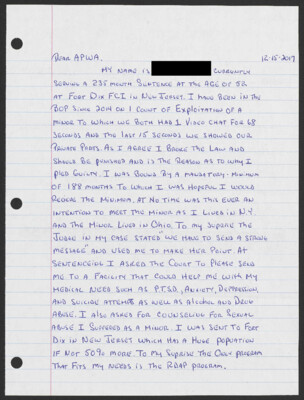 DEAR APWA, 12-15-2017
MY NAME IS CURRENTLY
SERVING A 235 MONTH SENTENCE AT THE AGE OF 52
AT FORT DIX FCI IN NEW JERSEY. I HAVE BEEN IN THE
BOP SINCE 2014 ON 1 COUNT OF EXPLOITATION OF A
MINOR TO WHICH WE BOTH HAD 1 VIDEO CHAT FOR 68
SECONDS AND THE LAST 15 SECONDS WE SHOWED OUR
PRIVATE PARTS. AS I AGREE I BROKE THE LAW AND
SHOULD BE PUNISHED AND IS THE REASON AS TO WHY I
PLED GUILTY. I WAS BOUND BY A MANDATORY-MINIMUM
OF 188 MONTHS TO WHICH I WAS HOPEFUL I WOULD
RECEIVE THE MINIMUM. AT NO TIME WAS THIS EVER AN
INTENTION TO MEET THE MINOR AS I LIVED IN N.Y.
AND THE MINOR LIVED IN OHIO. TO MY SUPRISE THE
JUDGE IN MY CASE STATED "WE HAVE TO SEND A STRONG
MESSAGE" AND USED ME TO MAKE HER POINT. AT
SENTENCEING I ASKED THE COURT TO PLEASE SEND
ME TO A FACILITY THAT COULD HELP ME WITH MY
MEDICAL NEED SUCH AS P.T.S.D., ANXIETY, DEPRESSION,
AND SUICIDE ATTEMPTS AS WELL AS ALCOHOL AND DRUG
ABUSE. I ALSO ASKED FOR COUNSELING FOR SEXUAL
ABUSE I SUFFERED AS A MINOR. I WAS SENT TO FORT
DIX IN NEW JERSEY WHICH HAS A HUGE POPULATION
IF NOT 50% MORE. TO MY SUPRISE THE ONLY PROGRAM
THAT FITS MY NEEDS IS THE RDAP PROGRAM.